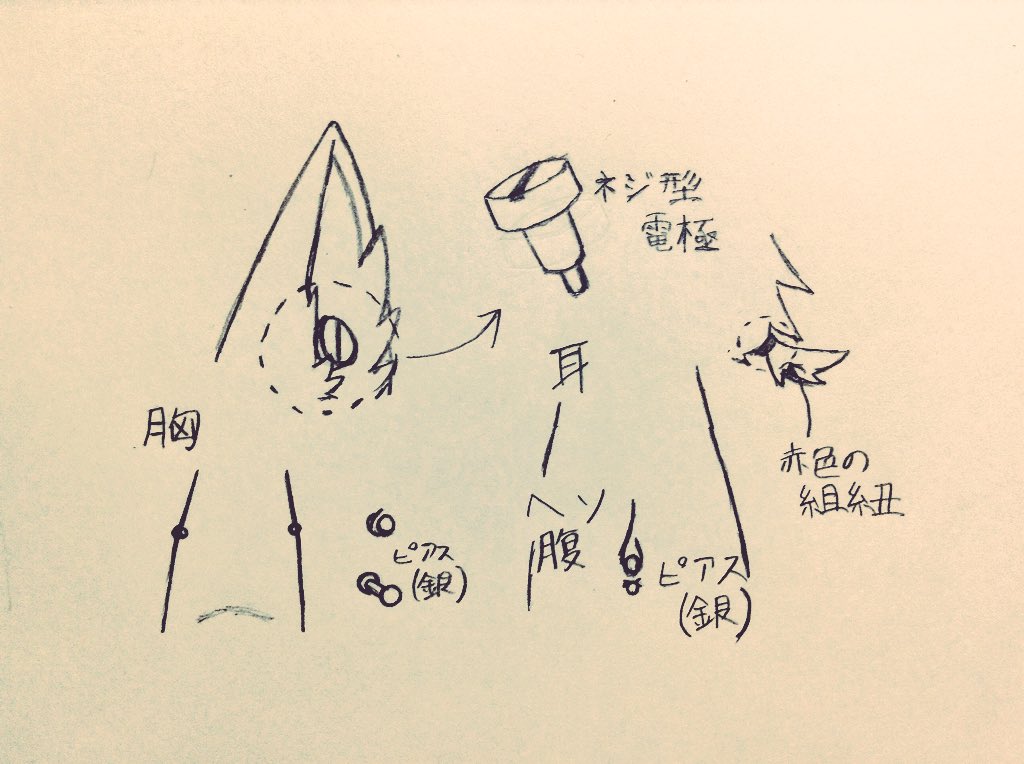 ネジ型
電極
耳
胸
赤色の
組紐
ヘソ
腹
ピアス
(銀)
ピアス
(銀)